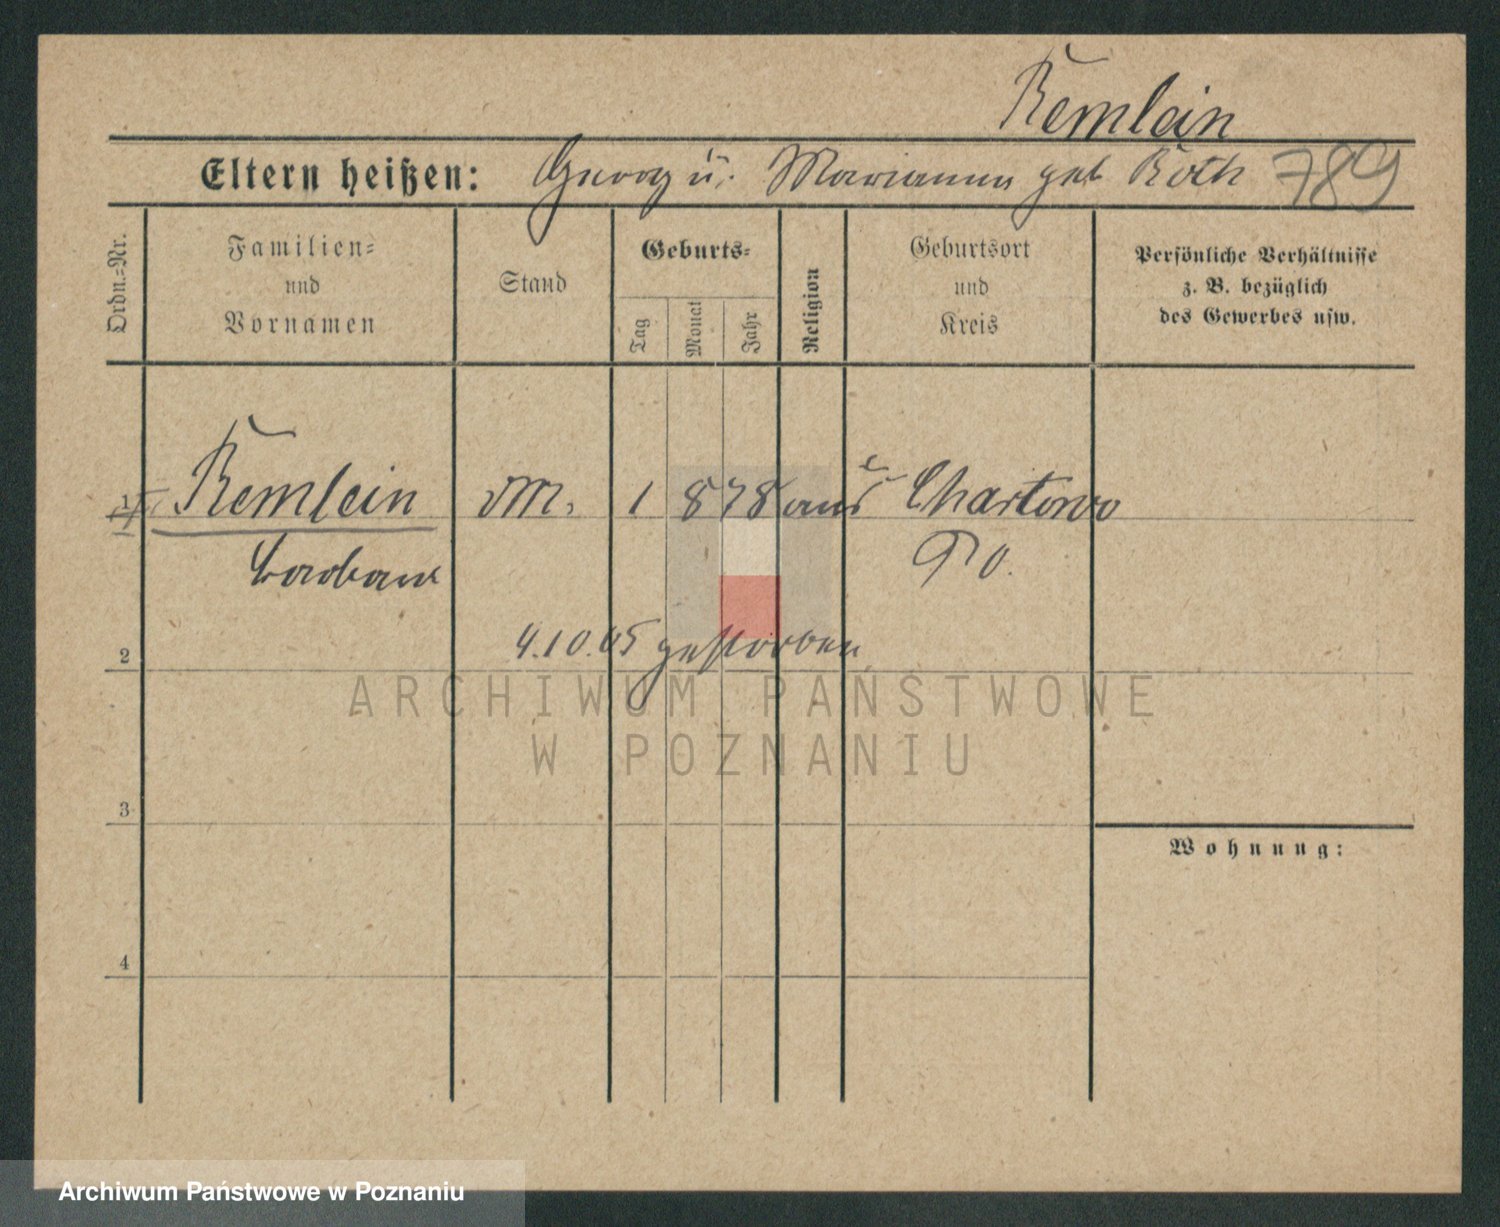 Remlein
Eltern heißen: Georg u. Marianna geb Roth 789
Ordn.=Nr.
Familien=
und
Vornamen
Stand
Geburts=
Tag
Monat
Jahr
Religion
Geburtsort
und
Kreis
Persönliche Verhältnisse
z. B. bezüglich
des Gewerbes usw.
1 Remlein 1 8 78 Chartowo
Barbara PO.
4.10.05 gestorben
2
ARCHIWUM PAŃSTWOWE
W POZNANIU
3
Wohnung:
4
Archiwum Państwowe w Poznaniu